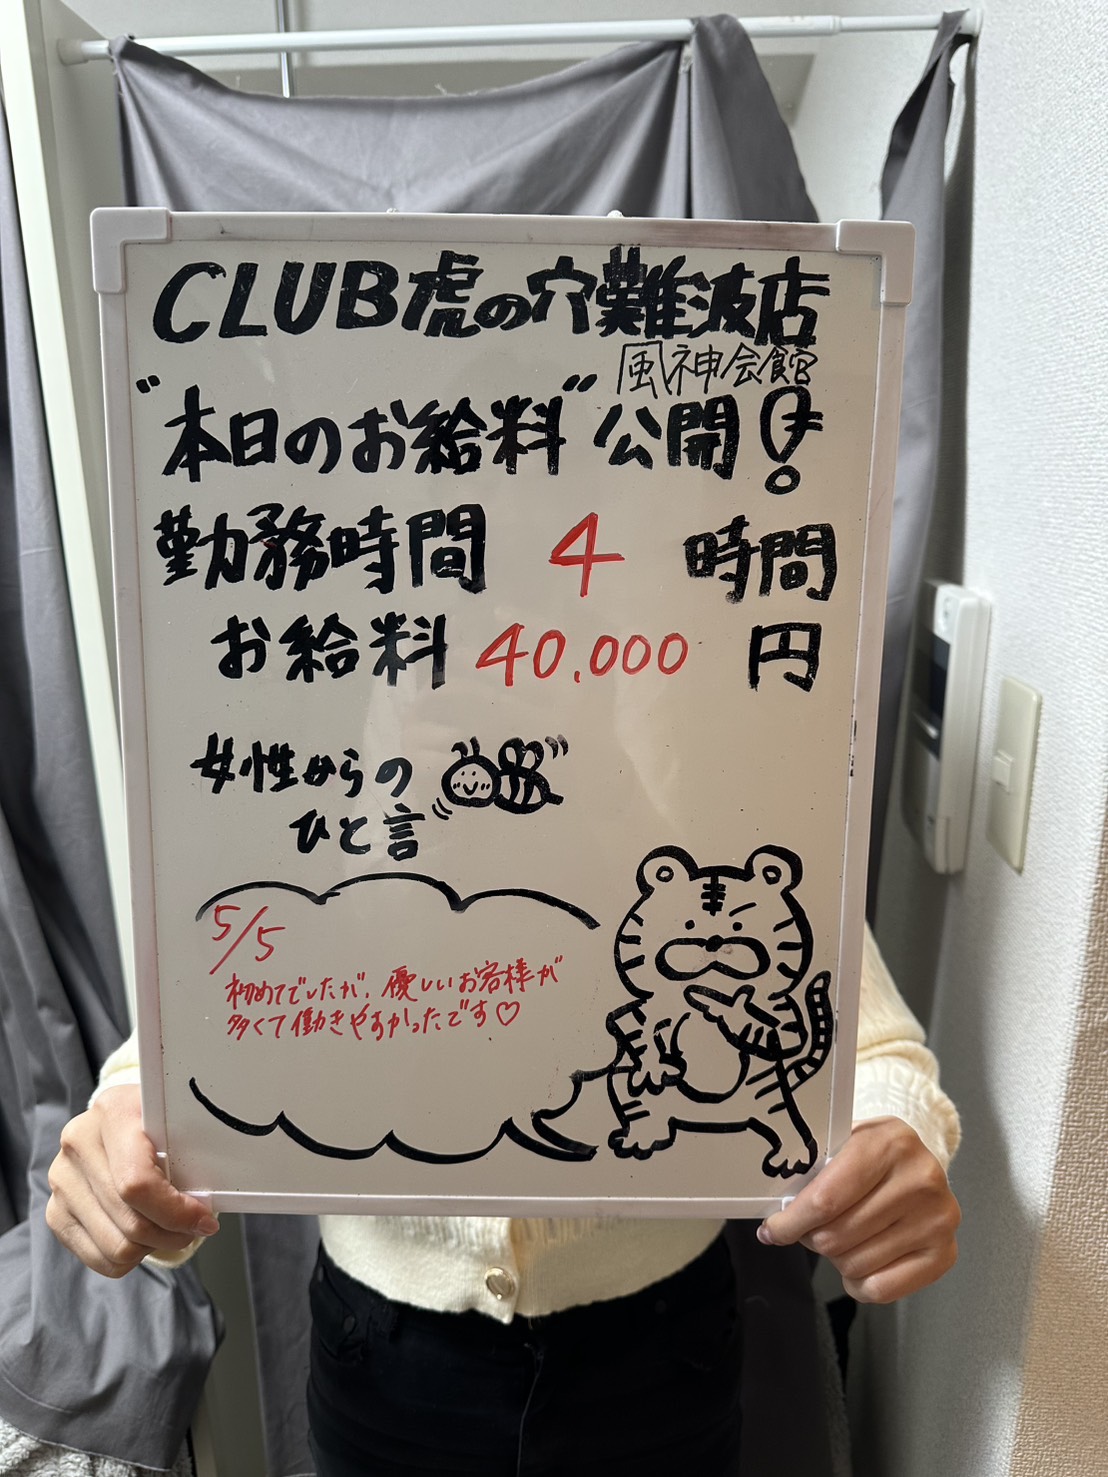 CLUB虎の穴難波店
風神会館
"本日のお給料"公開!
勤務時間 4 時間
お給料 40.000 円
女性からの
ひと言
5/5
初めてでしたが、優しいお客様が
多くて働きやすかったです♡